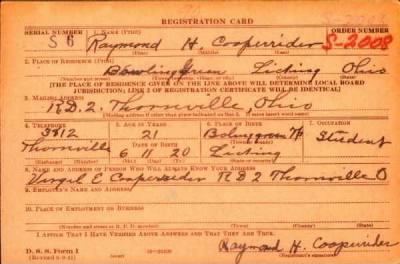 REGISTRATION CARD
SERIAL NUMBER 1. NAME (Print) S-2008 ORDER NUMBER
S 6 Raymond H. Cooperrider S-2008
(First) (Middle) (Last)
2. PLACE OF RESIDENCE (Print)
Bowling Green Licking Ohio
[THE PLACE OF RESIDENCE GIVEN ON THE LINE ABOVE WILL DETERMINE LOCAL BOARD
JURISDICTION; LINE 2 OF REGISTRATION CERTIFICATE WILL BE IDENTICAL]
3. MAILING ADDRESS
R.D.2. Thornville, Ohio
[Mailing address if other than place indicated on line 2. If same, insert word same]
4. TELEPHONE 5. AGE IN YEARS 6. PLACE OF BIRTH 7. OCCUPATION
3912 21 Student
Thornville DATE OF BIRTH Licking
6 11 20
8. NAME AND ADDRESS OF PERSON WHO WILL ALWAYS KNOW YOUR ADDRESS
Virgil E Cooperrider R D 2 Thornville O
9. EMPLOYER'S NAME AND ADDRESS
10. PLACE OF EMPLOYMENT OR BUSINESS
(Number and street or R. F. D. number) (Town) (County) (State)
I AFFIRM THAT I HAVE VERIFIED ABOVE ANSWERS AND THAT THEY ARE TRUE.
D. S. S. Form 1 Raymond H. Cooperrider
(Registrant's signature)